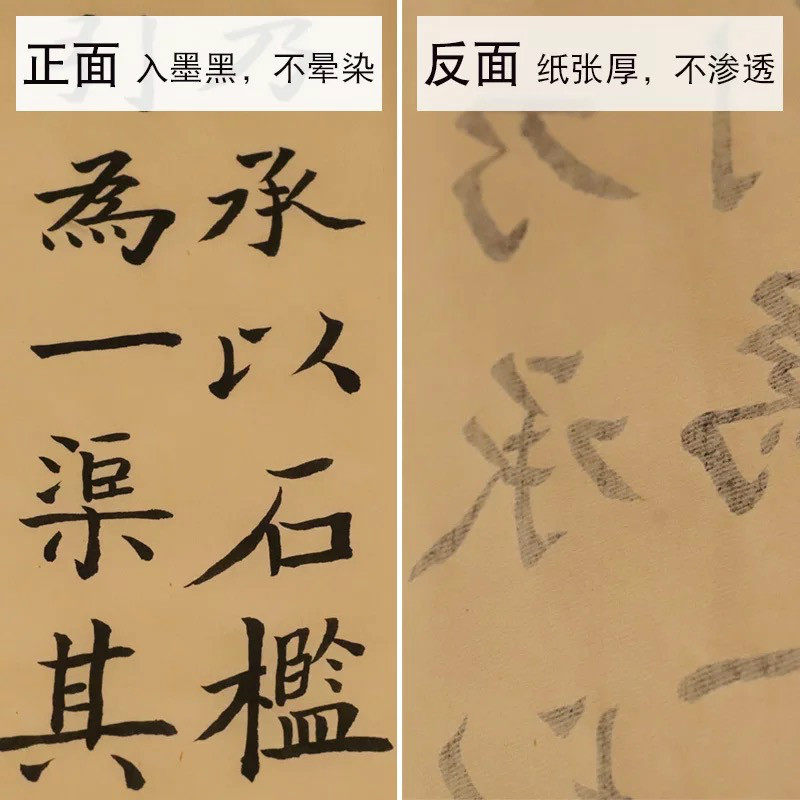 正面 入墨黑，不晕染
反面 纸张厚，不渗透
乃承以石檻
引為一渠其